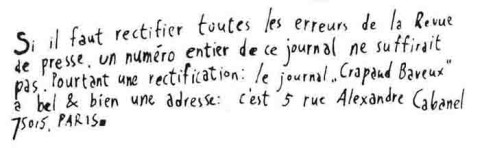 Si il faut rectifier toutes les erreurs de la Revue
de presse, un numéro entier de ce journal ne suffirait
pas. Pourtant une rectification: le journal „Crapaud Baveux"
a bel & bien une adresse: c'est 5 rue Alexandre Cabanel
75015. PARIS.